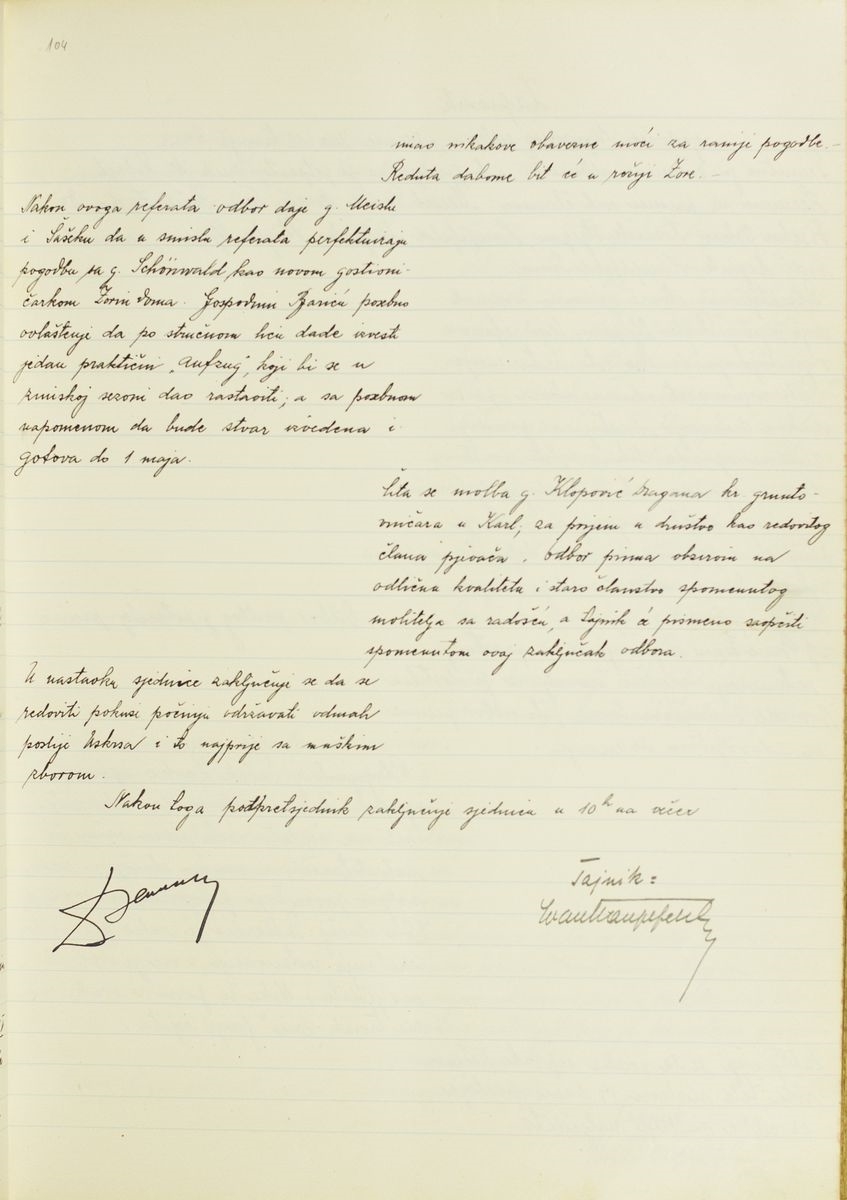 104
imao nikakove obavezne moći za ranije pogodbe. -
Reduta dabome bit će u režiji Zore. -
Nakon ovoga referata odbor daje g.
i Šašeku da u smislu referata perfektuiraju
pogodbu sa g. Schönwald kao novom gostioni-
čarkom Zorin doma. Gospodinu Bariću posebno
ovlaštenje da po stručnom licu dade izvesti
jedan praktični „Aufzug", koji bi se u
zimskoj sezoni dao rastaviti; a sa posebnom
napomenom da bude stvar izvedena i
gotova do 1 maja.
Čita se molba g. Klopović Dragana kr. grunto-
vničara u Karl; za prijem u društvo kao redovitog
člana pjevača. Odbor prima obzirom na
odličnu kvalitetu i staro članstvo spomenutog
molitelja sa radošću, a tajnik će pismeno saopćiti
spomenutom ovaj zaključak odbora.
U nastavku sjednice zaključuje se da se
redoviti pokusi počinju održavati odmah
poslije Uskrsa i to najprije sa muškim
zborom.
Nakon toga potpretsjednik zaključuje sjednicu u 10h na večer
Tajnik: